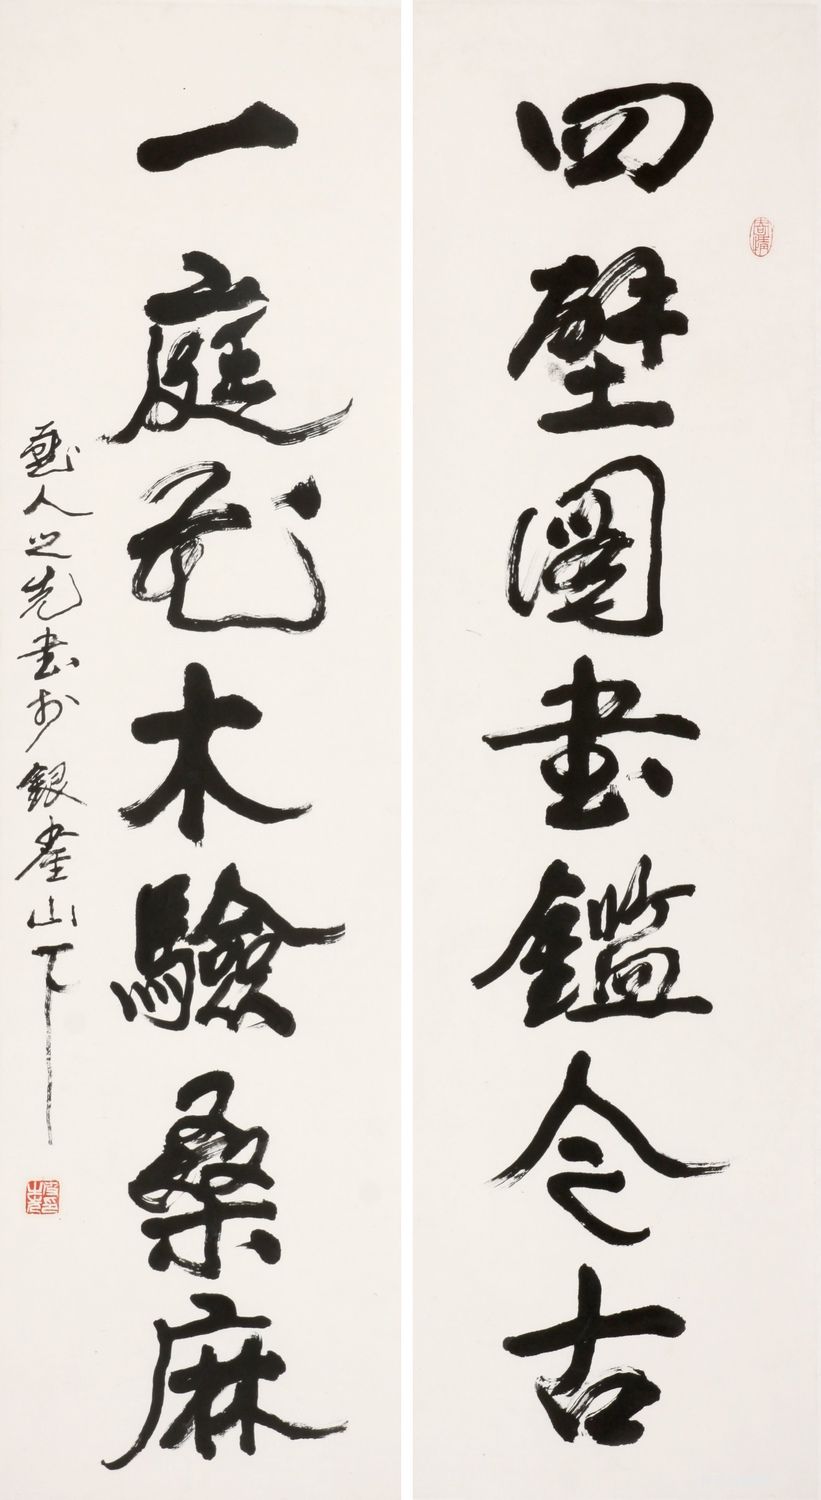 四壁圖書鑑今古
一庭花木驗桑麻
人之先書於銀山下